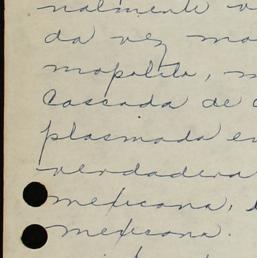 nalmente v
da vez ma
mopolita, m
Cascada de
plasmada en
verdadera
mexicana,
mexicana.